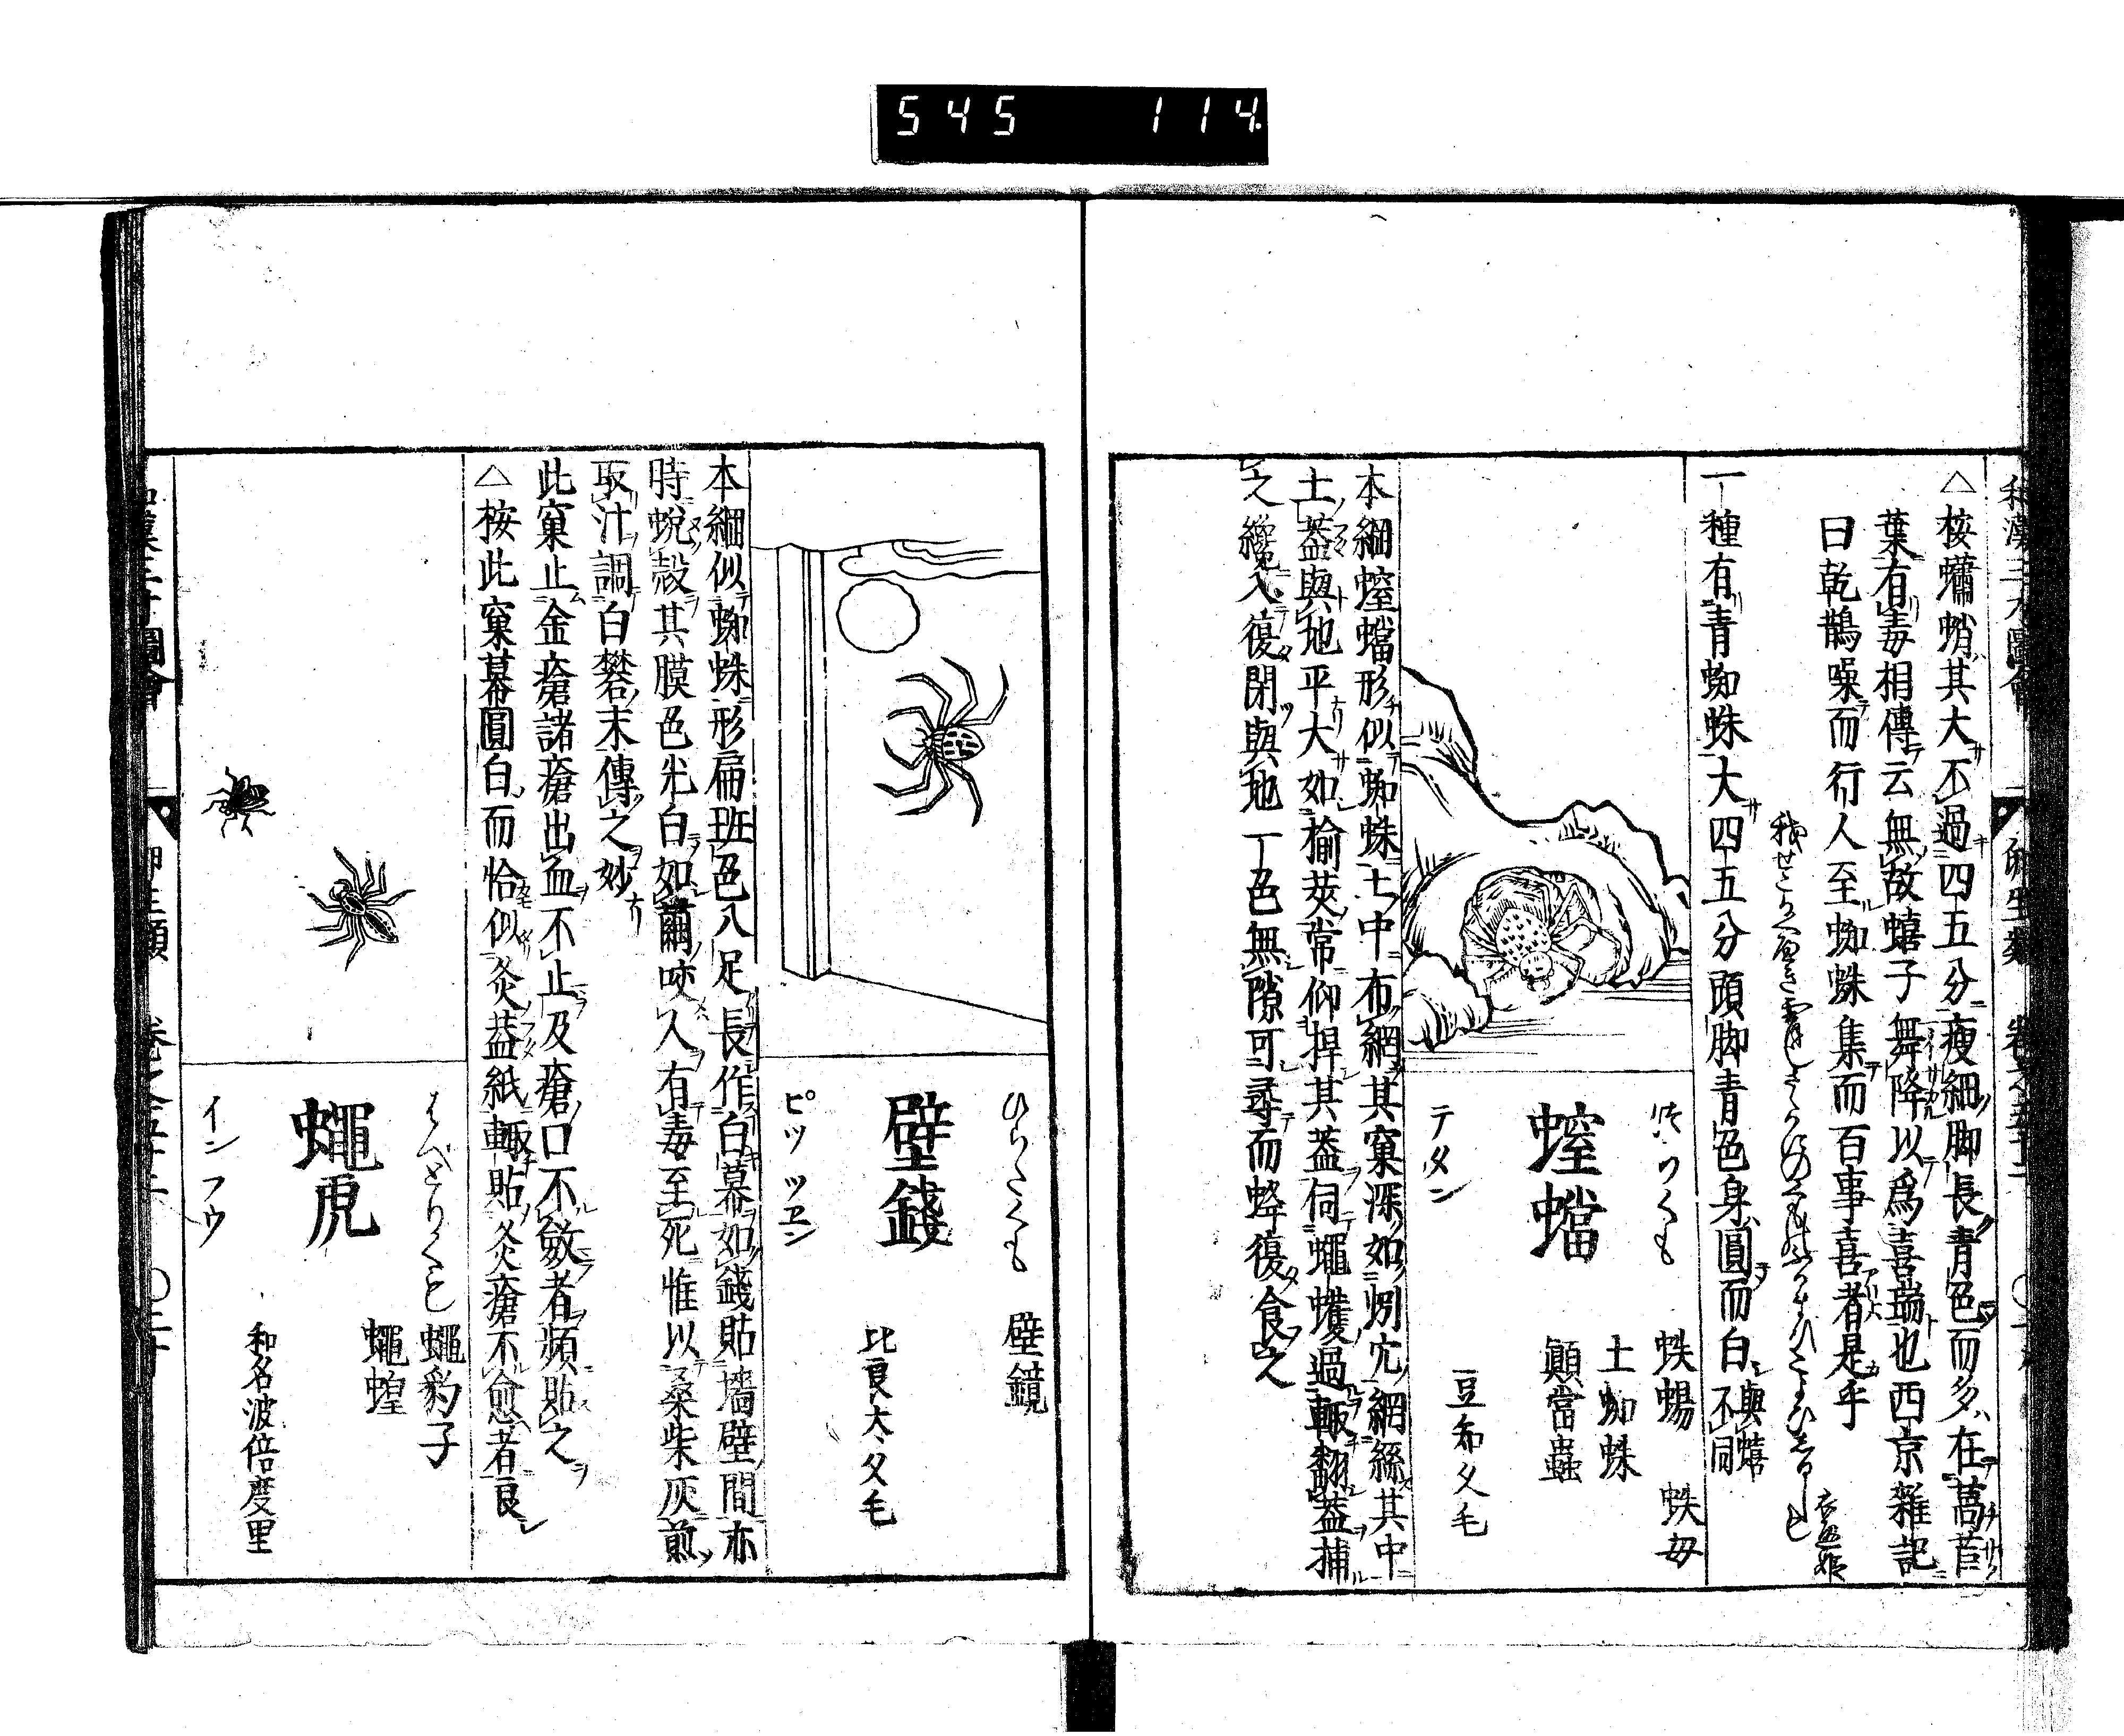 545 114
和漢三才圖會 卵生類
△桉蠨蛸其大サ不過四五分瘦細脚長青色而多在萵苣
葉有毒相傳云無故蟢子舞降以爲喜端也西京雜記
曰乾鵲噪而行人至蜘蛛集而百事喜者是乎
衣通姫
一種有青蜘蛛大サ四五分頭脚青色身圓而白與蟢不同
蛈蝪 蛈母
土蜘蛛
顚當蟲
螲蟷
テタン
豆布久毛
本綱螲蟷形似蜘蛛土中布網其窠深如蚓穴網絲其中
土葢與地平大サ如榆莢常仰捍其葢伺蠅蠖過輙翻葢捕
之纔入復閉與地一色無隙可尋而蜂復食之
ひらたくも
壁鏡
壁錢
ピツ ツエン
比良太久毛
本綱似蜘蛛形扁班色八足長作白幕如錢貼墻壁間亦
時蛻殼其膜色光白如繭咬人有毒至死惟以桑柴灰煎
取汁調白礬末傳之妙
此窠止金瘡諸瘡出血不止及瘡口不斂者頻貼之
△桉此窠幕圓白而恰似灸葢紙輙貼灸瘡不愈者良
はへとりくも
蠅豹子
蠅蝗
蠅虎
イン フウ
和名波倍度里